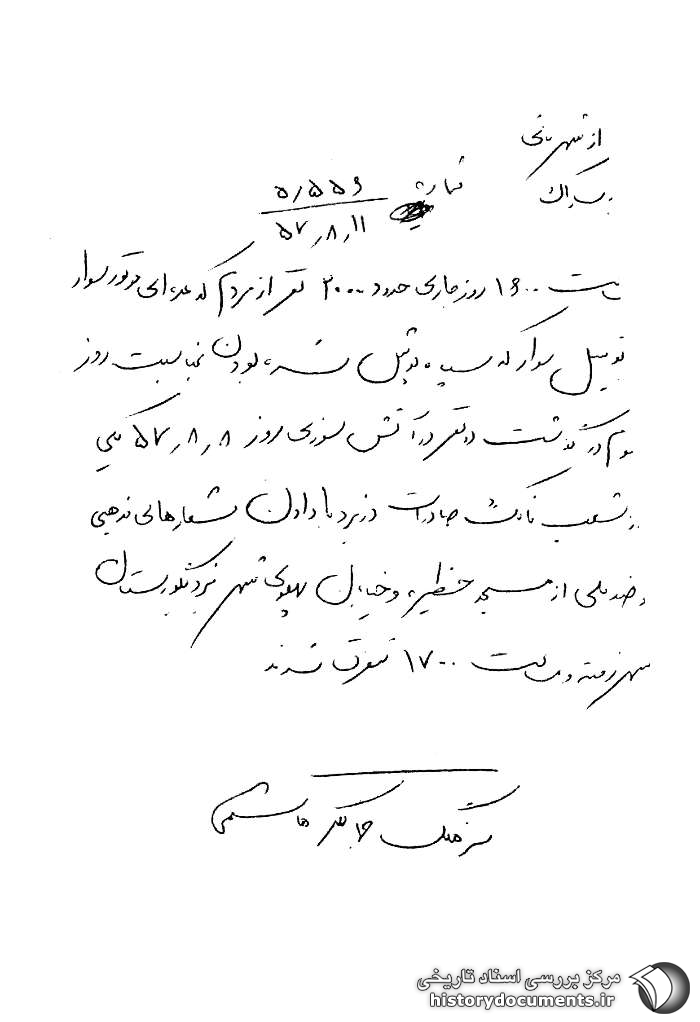 از شهربانی
به ساواک شماره ۵٫۵۵۶
۵۷٫۸٫۱۱
ساعت ۱۶۰۰ روز جاری حدود ۳۰۰۰ نفر از مردم که عده‌ای موتور سوار
اتومبیل سوار که سیاه پوش شده بودن بمناسبت روز
سوم درگذشت دو نفر در آتش سوزی روز ۵۷٫۸٫۸ یکی
از شعب بانک صادرات با دادن شعارهای مذهبی
و ضد ملی از مسجد و خیابان پهلوی شهر بگورستان
شهر رفته و ساعت ۱۷۰۰ متفرق شدند
سرهنگ جهانگیر هاشمی
مرکز بررسی اسناد تاریخی
historydocuments.ir